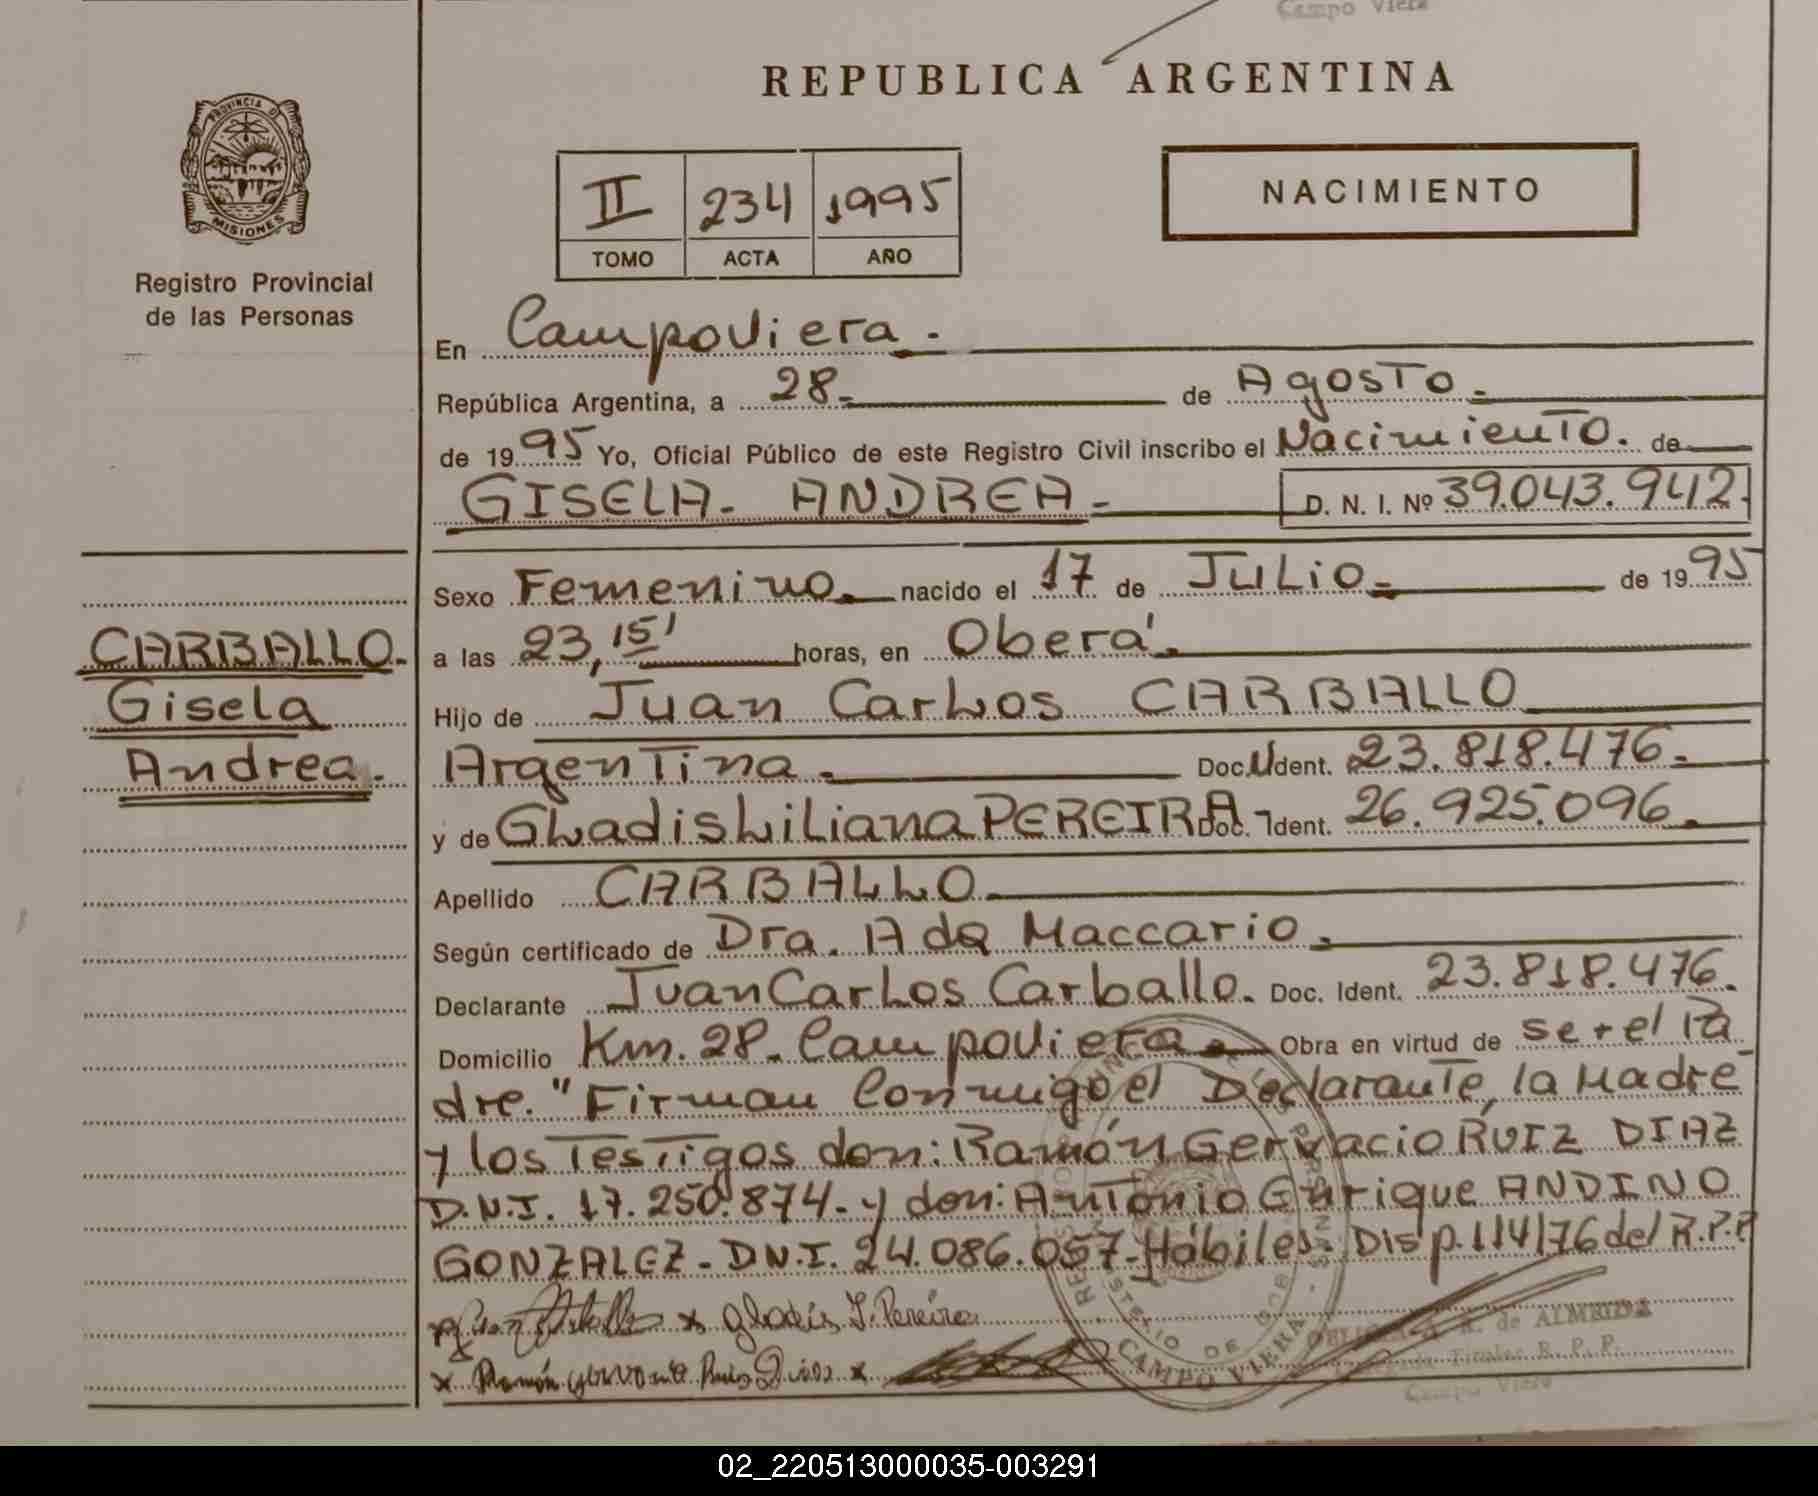 Campo Viera
REPUBLICA ARGENTINA
PROVINCIA DE
MISIONES
Registro Provincial
de las Personas
II 234 1995
TOMO ACTA AÑO
NACIMIENTO
En Campoviera.
República Argentina, a 28 de Agosto
de 1995 Yo, Oficial Público de este Registro Civil inscribo el Nacimiento. de
GISELA. ANDREA D. N. I. Nº 39.043.942.
Sexo Femenino nacido el 17 de Julio de 1995
a las 23,15' horas, en Oberá
CARBALLO.
Gisela
Andrea.
Hijo de Juan Carlos CARBALLO
Argentina Doc. Ident. 23.818.476
y de Gladis Liliana PEREIRA Doc. Ident. 26.925.096
Apellido CARBALLO
Según certificado de Dra. Ada Maccario
Declarante Juan Carlos Carballo. Doc. Ident. 23.818.476.
Domicilio Km. 28. Campoviera Obra en virtud de ser el Pa
dre. "Firman Conmigo el Declarante, la Madre
y los Testigos don: Ramón Gervacio RUIZ DIAZ
D.N.I. 17.250.874. y don: Antonio Enrique ANDINO
GONZALEZ. D.N.I. 24.086.057. Hábiles. Disp. 114/76 del R.P.P.
x Gladis L. Pereira
x Ramón x
CAMPO VIERA
A. R. de ALMEIDA
Titular R. P. P.
Campo Viera
02_220513000035-003291